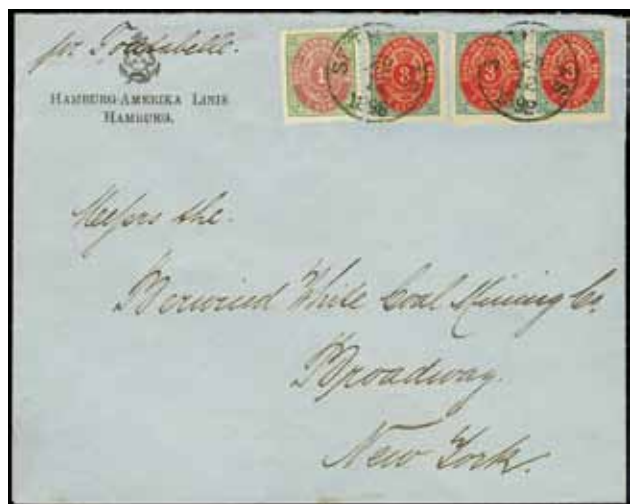 per Fontabelle.
HAMBURG-AMERIKA LINIE
HAMBURG.
1 3 3 3
ST. 1896
Messrs the
Berwind White Coal Mining Co.
Broadway.
New York.